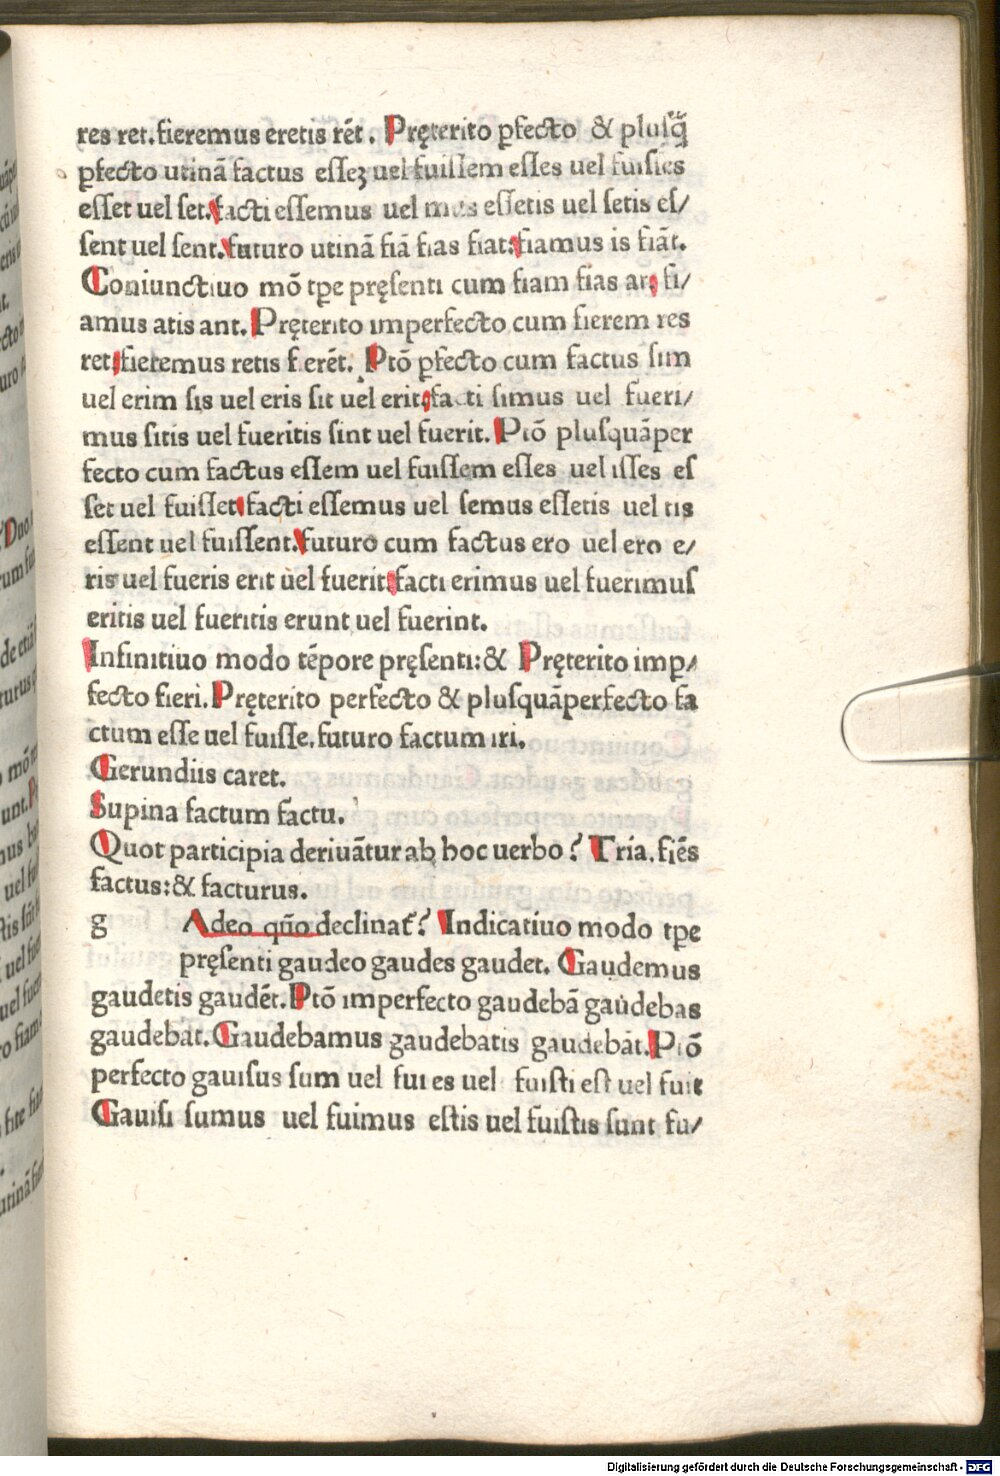 res ret.fieremus eretis rēt. Pręterito ꝑfecto & pluſq̃
ꝑfecto utinā factus eſſeʒ uel fuiſſem eſſes uel fuiſſes
eſſet uel ſet.facti eſſemus uel mus eſſetis uel ſetis eſ/
ſent uel ſent.futuro utinā fiā fias fiat:fiamus is fiāt.
Coniunctiuo mō tꝑe pręſenti cum fiam fias at: fi/
amus atis ant. Pręterito imperfecto cum fierem res
ret:fieremus retis fierēt. Ptō ꝑfecto cum factus ſim
uel erim ſis uel eris ſit uel erit:facti ſimus uel fueri/
mus ſitis uel fueritis ſint uel fuerit. Ptō pluſquāper
fecto cum factus eſſem uel fuiſſem eſſes uel iſſes eſ
ſet uel fuiſſet:facti eſſemus uel ſemus eſſetis uel tis
eſſent uel fuiſſent.futuro cum factus ero uel ero e/
ris uel fueris erit uel fuerit:facti erimus uel fuerimuſ
eritis uel fueritis erunt uel fuerint.
Infinitiuo modo tēpore pręſenti:& Pręterito imꝑ/
fecto fieri. Pręterito perfecto & pluſquāperfecto fa
ctum eſſe uel fuiſſe.futuro factum iri.
Gerundiis caret.
Supina factum factu.
Quot participia deriuātur ab hoc uerbo? Tria.fiēs
factus:& facturus.
g Adeo qūo declinat̄? Indicatiuo modo tꝑe
pręſenti gaudeo gaudes gaudet. Gaudemus
gaudetis gaudēt. Ptō imperfecto gaudebā gaudebas
gaudebat. Gaudebamus gaudebatis gaudebāt. Ptō
perfecto gauiſus ſum uel fui es uel fuiſti eſt uel fuit
Gauiſi ſumus uel fuimus eſtis uel fuiſtis ſunt fu/
Digitalisierung gefördert durch die Deutsche Forschungsgemeinschaft - DFG